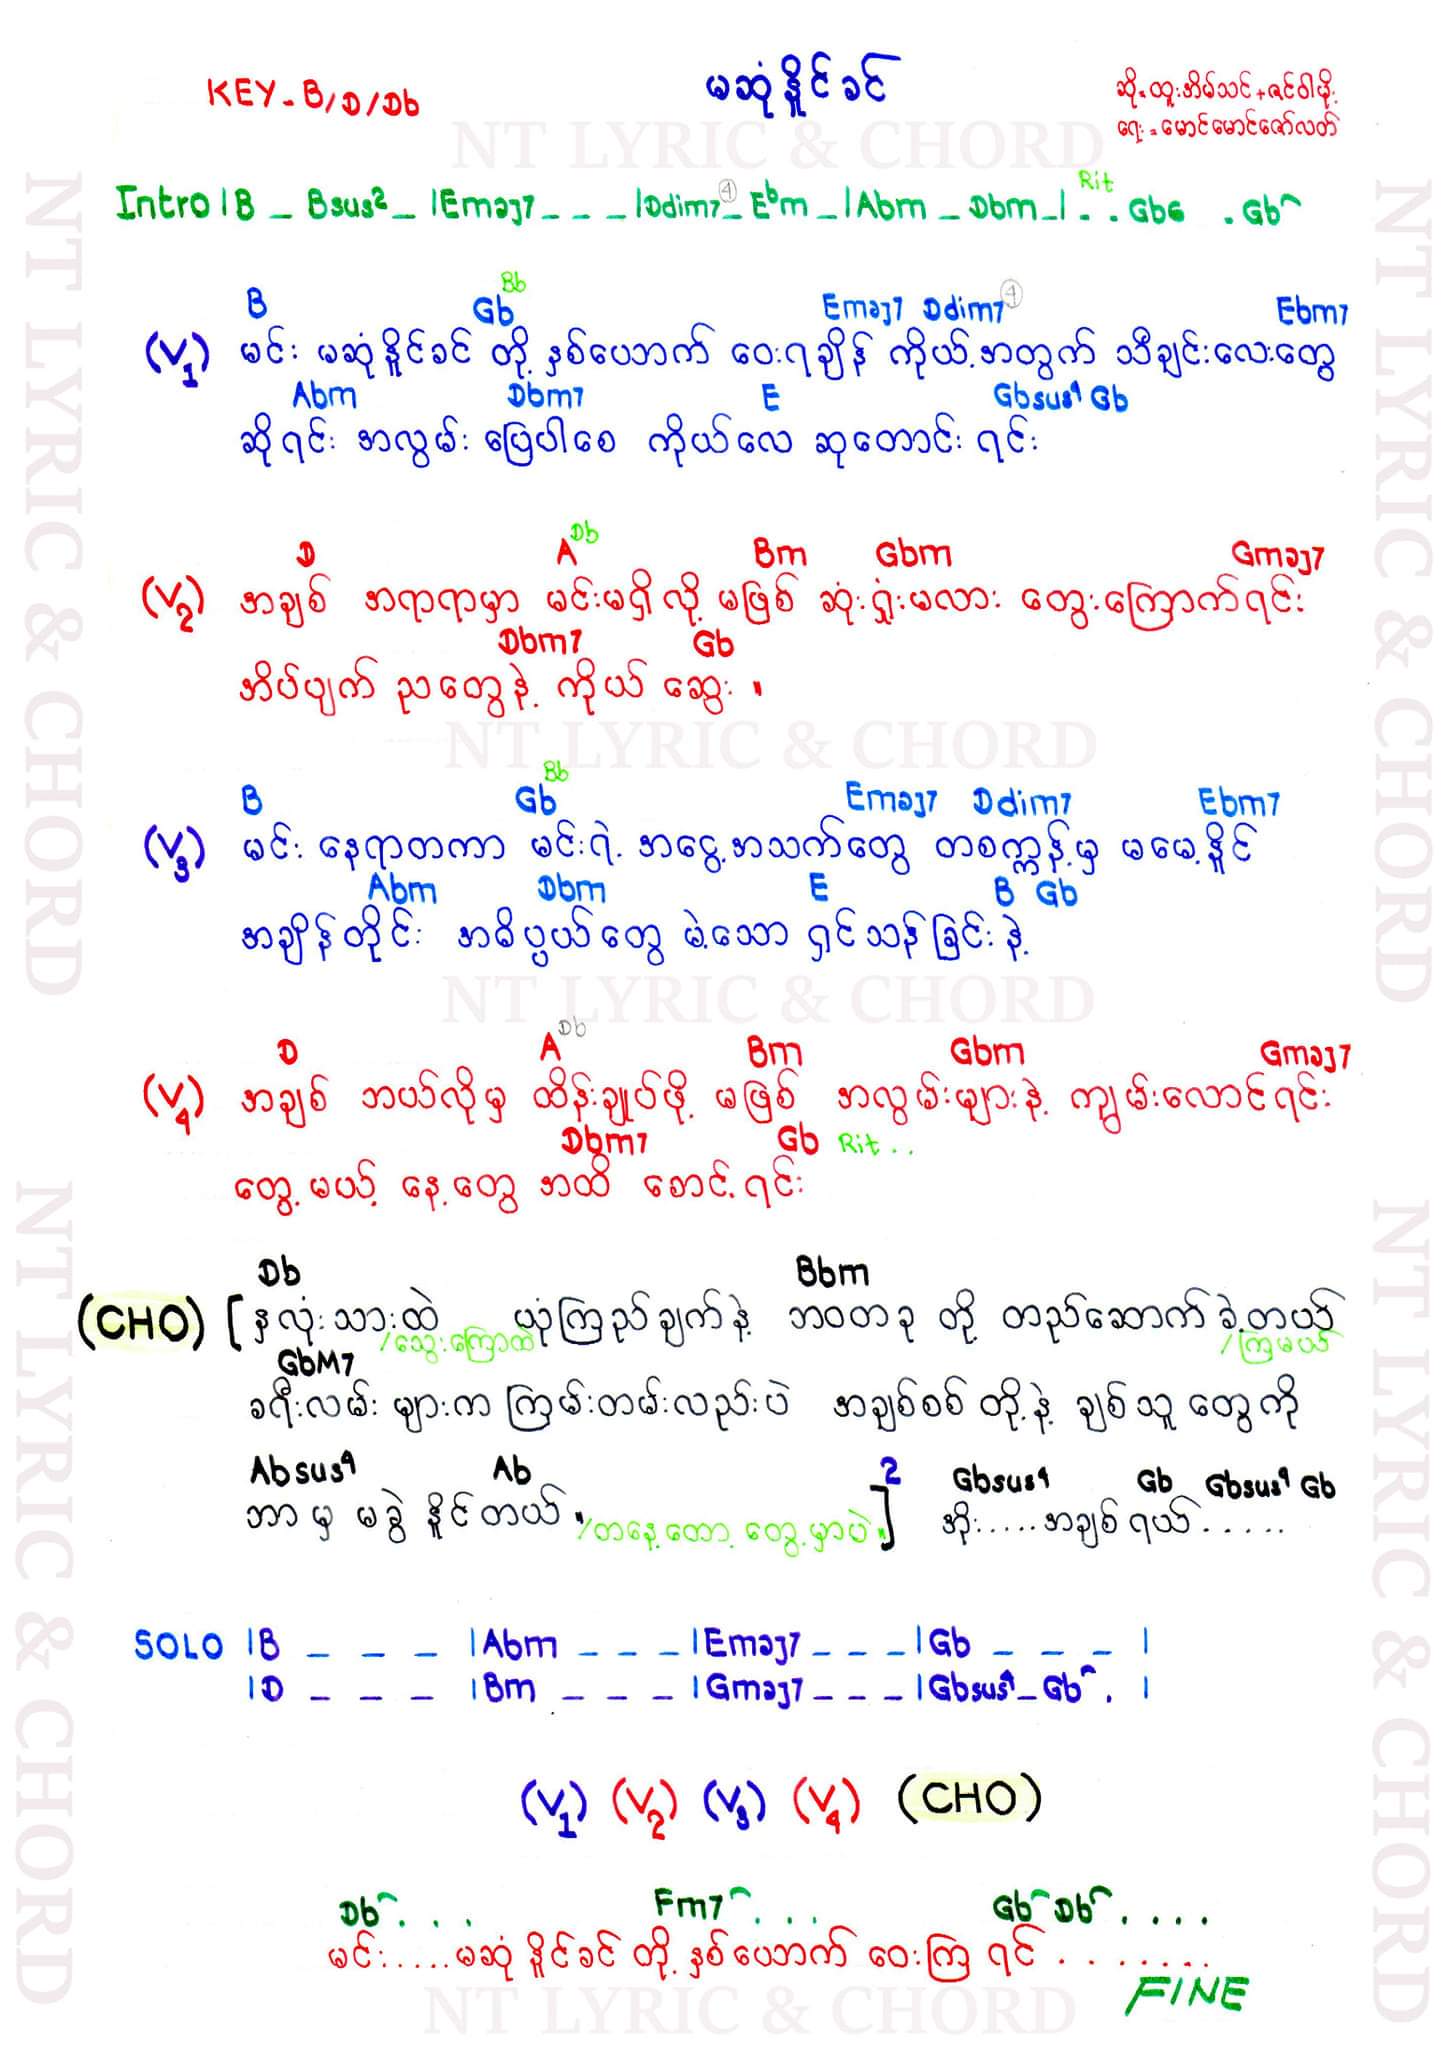 KEY - B/D/Db
မဆုံနိူင်ခင်
ဆို - ထူးအိမ်သင် + ဇင်ဝါဖိုး
ရေး - မောင်မောင်ဇော်လတ်
NT LYRIC & CHORD
Intro |B _ Bsus2 _ |Emaj7 _ _ _ |Ddim7④ _ Ebm _ |Abm _ Dbm _ | . . Gb6 . Gb^
Rit
B Gb Bb Emaj7 Ddim7④ Ebm7
(V1) မင်း မဆုံနိူင်ခင် တို့ နှစ်ယောက် ဝေးရချိန် ကိုယ့်အတွက် သီချင်းလေးတွေ
Abm Dbm7 E Gbsus4 Gb
ဆိုရင်း အလွမ်း ပြေပါစေ ကိုယ်လေ ဆုတောင်း ရင်း
D A Db Bm Gbm Gmaj7
(V2) အချစ် အရာရာမှာ မင်းမရှိလို့ မဖြစ် ဆုံးရှုံးမလား တွေးကြောက်ရင်း
Dbm7 Gb
အိပ်ပျက် ညတွေနဲ့ ကိုယ် ဆွေး ။
NT LYRIC & CHORD
B Gb Bb Emaj7 Ddim7 Ebm7
(V3) မင်း နေရာတကာ မင်းရဲ့ အငွေ့အသက်တွေ တစက္ကန့်မှ မမေ့နိူင်
Abm Dbm E B Gb
အချိန်တိုင်း အဓိပ္ပယ်တွေ မဲ့သော ရှင်သန်ခြင်းနဲ့
NT LYRIC & CHORD
D A Db Bm Gbm Gmaj7
(V4) အချစ် ဘယ်လိုမှ ထိန်းချုပ်ဖို့ မဖြစ် အလွမ်းများနဲ့ ကျွမ်းလောင်ရင်း
Dbm7 Gb Rit . .
တွေ့မယ့် နေ့တွေ အထိ စောင့်ရင်း
Db Bbm
(CHO) [ နှလုံးသားထဲ ယုံကြည်ချက်နဲ့ ဘဝတခု တို့ တည်ဆောက်ခဲ့တယ်
/သွေးကြောထဲ /ကြမယ်
GbM7
ခရီးလမ်း များက ကြမ်းတမ်းလည်းပဲ အချစ်စစ် တို့နဲ့ ချစ်သူ တွေကို
Absus4 Ab 2 Gbsus4 Gb Gbsus4 Gb
ဘာမှ မခွဲ နိူင်တယ် ။ /တနေ့တော့ တွေ့မှာပဲ ။ ] အိုး.....အချစ်ရယ်......
SOLO |B _ _ _ |Abm _ _ _ |Emaj7 _ _ _ |Gb _ _ _ |
|D _ _ _ |Bm _ _ _ |Gmaj7 _ _ _ |Gbsus4 _ Gb^ . |
(V1) (V2) (V3) (V4) (CHO)
Db^ . . . Fm7^ . . . Gb^ Db^ . . . .
မင်း.....မဆုံနိူင်ခင် တို့ နှစ်ယောက် ဝေးကြ ရင် . . . . . . . .
FINE
NT LYRIC & CHORD
NT LYRIC & CHORD
NT LYRIC & CHORD
NT LYRIC & CHORD
NT LYRIC & CHORD